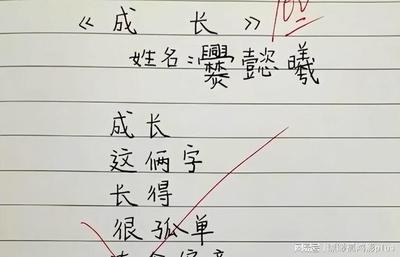 《成长》
100
姓名:爨懿曦
成长
这俩字
长得
很孤单